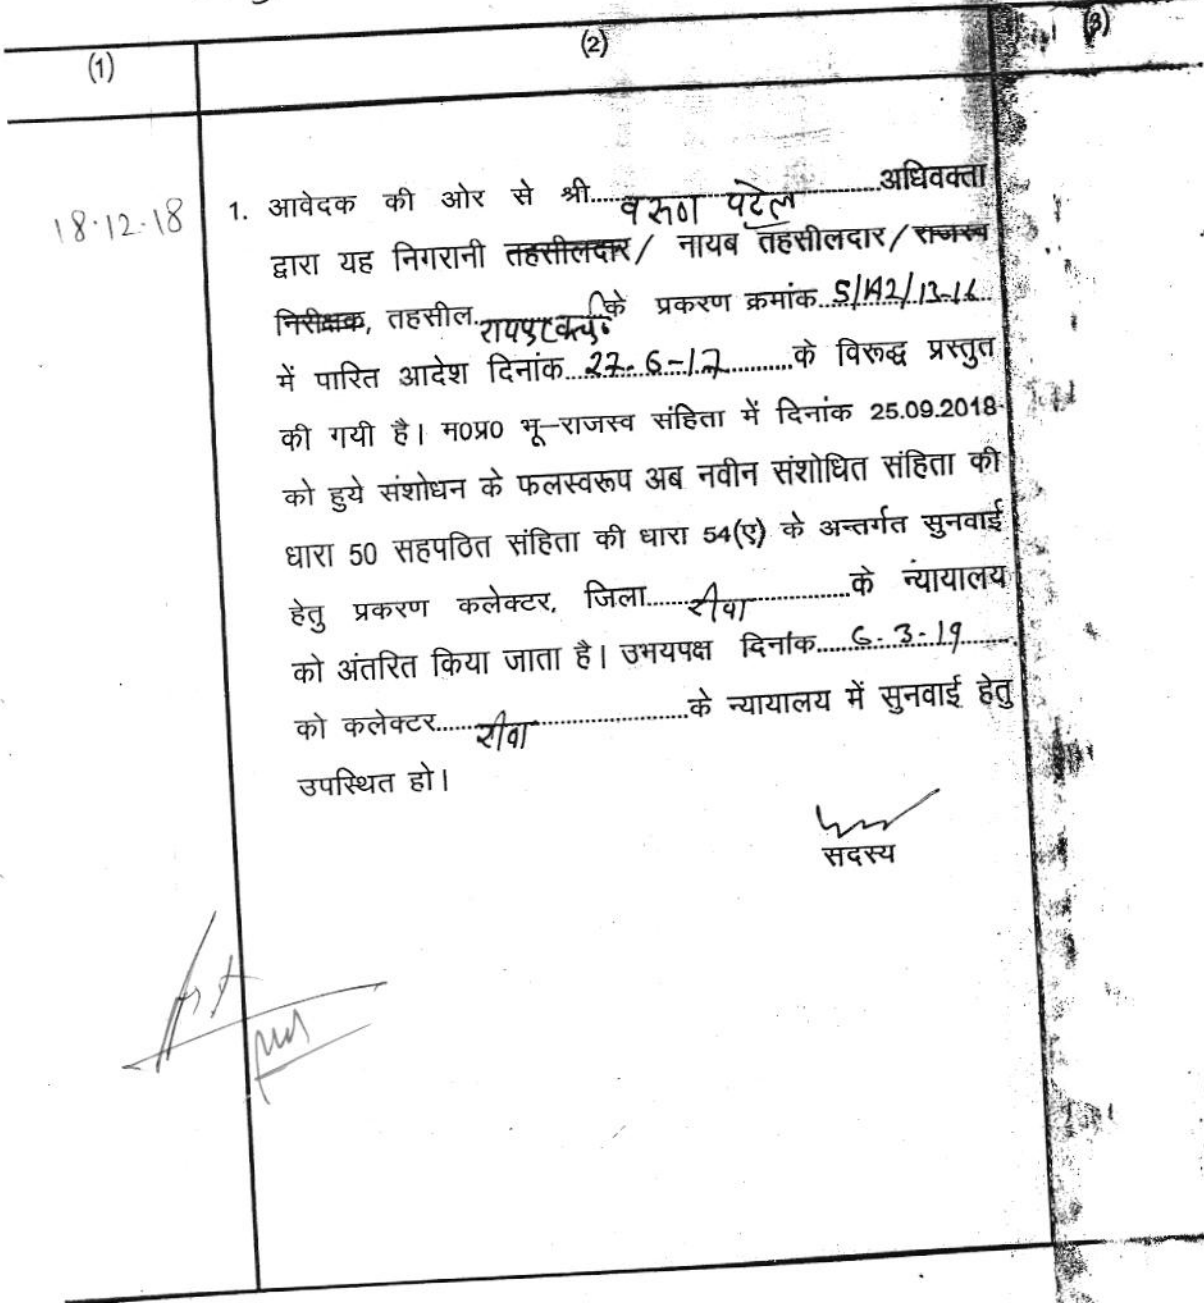 (1) (2) (3)
18.12.18
1. आवेदक की ओर से श्री.....वरुण पटेल.....अधिवक्ता
द्वारा यह निगरानी तहसीलदार/ नायब तहसीलदार/राजस्व
निरीक्षक, तहसील.....के प्रकरण क्रमांक..5/A2/13-16..
में पारित आदेश दिनांक...27-6-17.....के विरूद्ध प्रस्तुत
की गयी है। म0प्र0 भू–राजस्व संहिता में दिनांक 25.09.2018
को हुये संशोधन के फलस्वरूप अब नवीन संशोधित संहिता की
धारा 50 सहपठित संहिता की धारा 54(ए) के अन्तर्गत सुनवाई
हेतु प्रकरण कलेक्टर, जिला.....रीवा.....के न्यायालय
को अंतरित किया जाता है। उभयपक्ष दिनांक.....6-3-19.....
को कलेक्टर.....रीवा.....के न्यायालय में सुनवाई हेतु
उपस्थित हो।
सदस्य